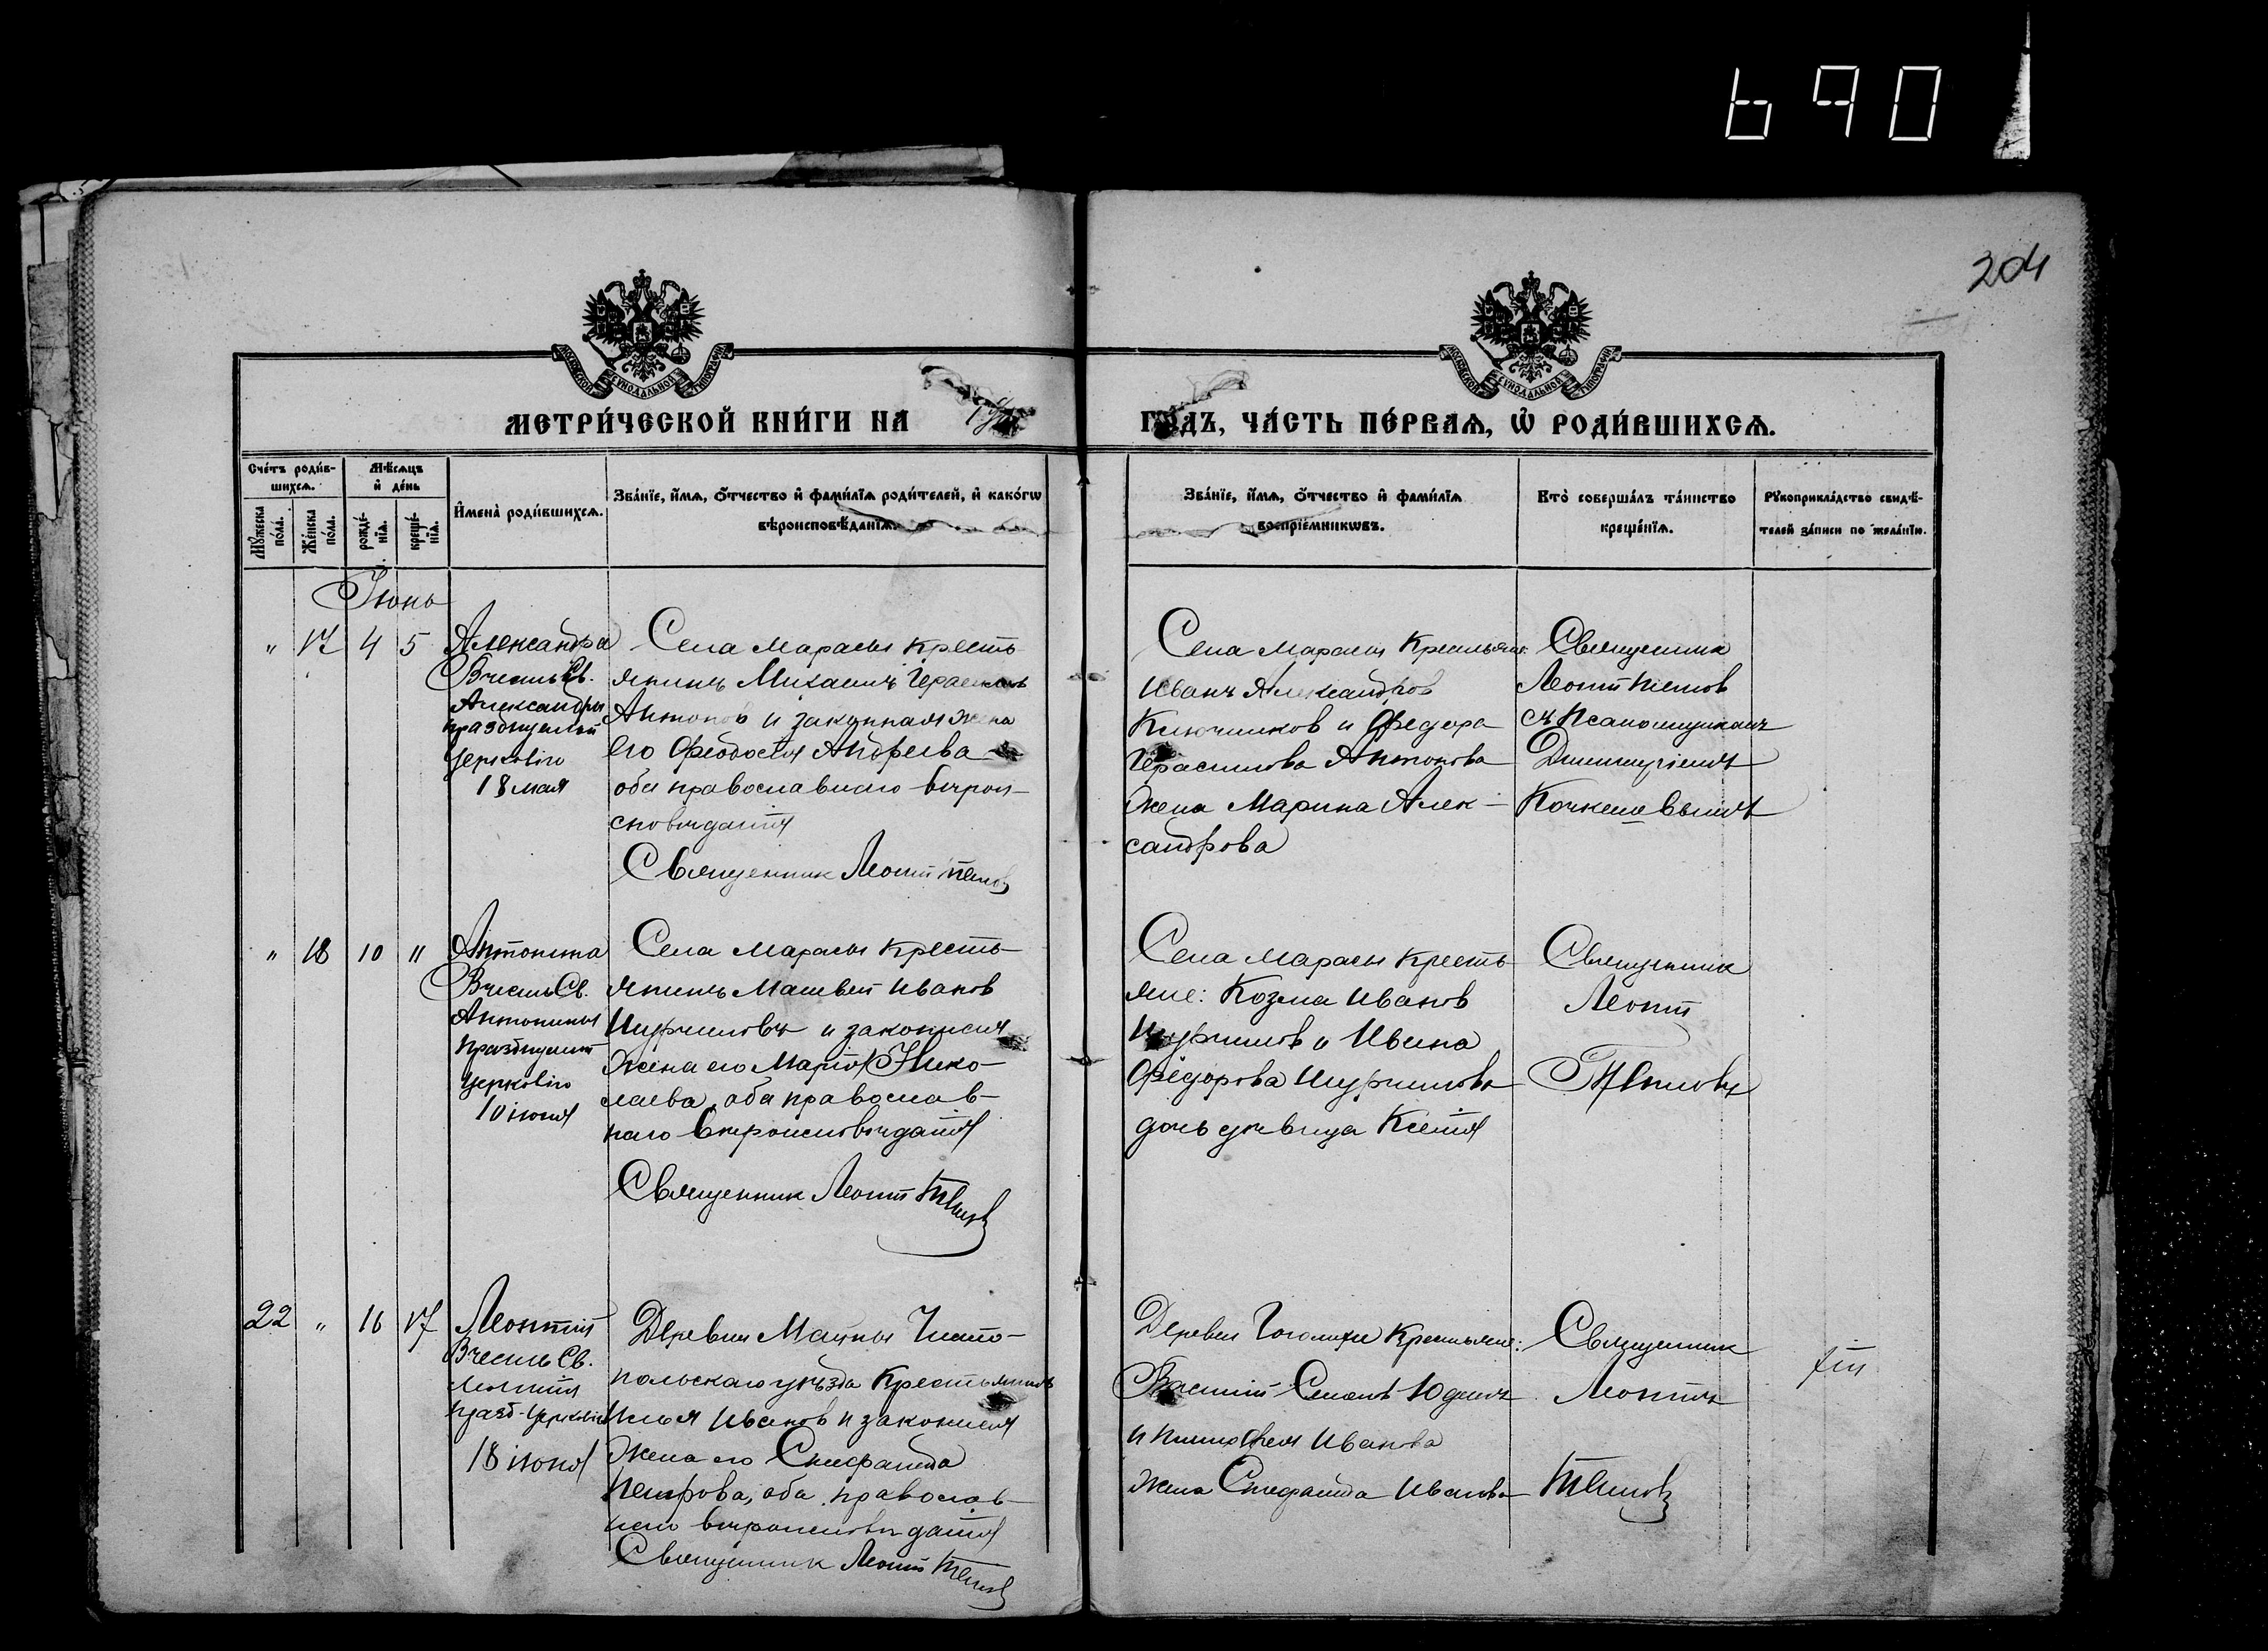 690
204
МОСКОВСКОЙ СѴНОДАЛЬНОЙ ТИПОГРАФІИ
МОСКОВСКОЙ СѴНОДАЛЬНОЙ ТИПОГРАФІИ
МЕТРИ́ЧЕСКОЙ КНИ́ГИ НА
ГОДЪ, ЧА́СТЬ ПЕ́РВАѦ, Ѡ҆ РОДИ́ВШИХСѦ.
Сче́тъ роди́в-
шихсѧ.
Мѣ́сѧцъ
и҆ де́нь
Мꙋ́жеска
по́ла.
Же́нска
по́ла.
рожде́-
нїѧ.
креще́-
нїѧ.
И҆мена̀ роди́вшихсѧ.
Зва́нїе, и҆́мѧ, ѻ҆́тчество и҆ фами́лїѧ роди́телей, и҆ како́гѡ
вѣроисповѣ́данїѧ.
Зва́нїе, и҆́мѧ, ѻ҆́тчество и҆ фами́лїѧ
воспрїе́мникѡвъ.
Кто̀ соверша́лъ та́инство
креще́нїѧ.
Рꙋкоприкла́дство свидѣ́-
телей за́писи по жела́нїю.
Іюнь
" 17 4 5
Александра
В честь Св.
Александры
празднуемой
Церковію
18 мая
Села Марасы кресть-
янинъ Михаилъ Герасимовъ
Антонов и законная жена
его Феодосія Андреева
оба православнаго вѣрои-
сповѣданія
Священник Леонтій
Села Марасы Крестьяне:
Иванъ Александров
Ключников и Федора
Герасимова Антонова
жена Марина Алек-
сандрова
Священник
Леонтій
съ Псаломщикомъ
" 18 10 11
Антонина
В честь Св.
Антонины
Празднуемой
Церковію
10 іюня
Села Марасы кресть-
янинъ Матвей Иванов
и законная
жена его Марія Нико-
лаева, оба православ-
наго вѣроисповѣданія
Священник Леонтій
Села Марасы Кресть-
яне: Козма Иванов
и Ивана
Федорова
дочь дѣвица Ксенія
Священник
Леонтій
22 " 16 17
Леонтій
В честь Св.
Леонтія
празд. Церковію
18 іюня
Деревни Майны Чисто-
польскаго уѣзда Крестьянинъ
Илья Иванов и законная
жена его Степанида
Петрова, оба православ-
наго вѣроисповѣданія
Священник Леонтій
Деревни Гоголихи Крестьяне:
Василій Юдинъ
и Иванова
жена Степанида Иванова
Священник
Леонтій